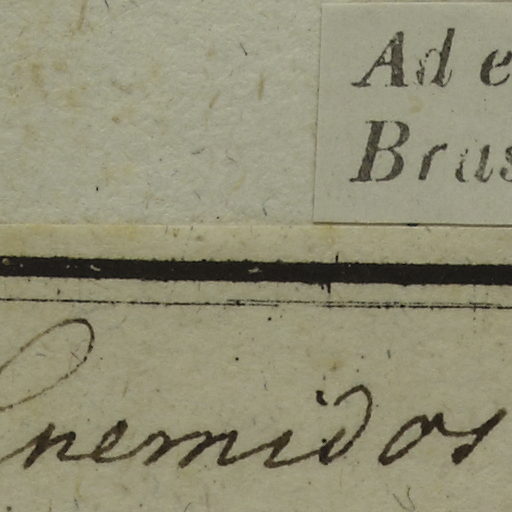 Ad e
Bras
Cnemidos